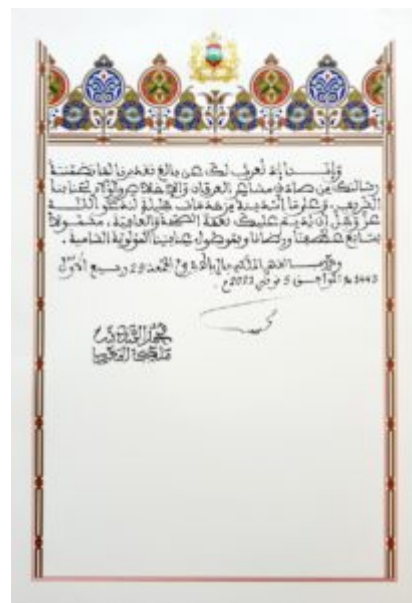 وإننا إذ نعرب لك عن بالغ تقديرنا لما تضمنته
رسالتك من صادق مشاعر العرفان والإخلاص والولاء لجنابنا
الشريف، وعلى ما أسديته من خدمات جليلة لندعو الله
عز وجل أن يديم عليك نعمة الصحة والعافية، مشمولا
بسابغ عطفنا ورضانا وبموصول عنايتنا المولوية السامية.
وحرر بالقصر الملكي بالرباط في يوم الجمعة 29 ربيع الأول
1443 هـ الموافق 5 نونبر 2021 م.
محمد السادس
ملك المغرب